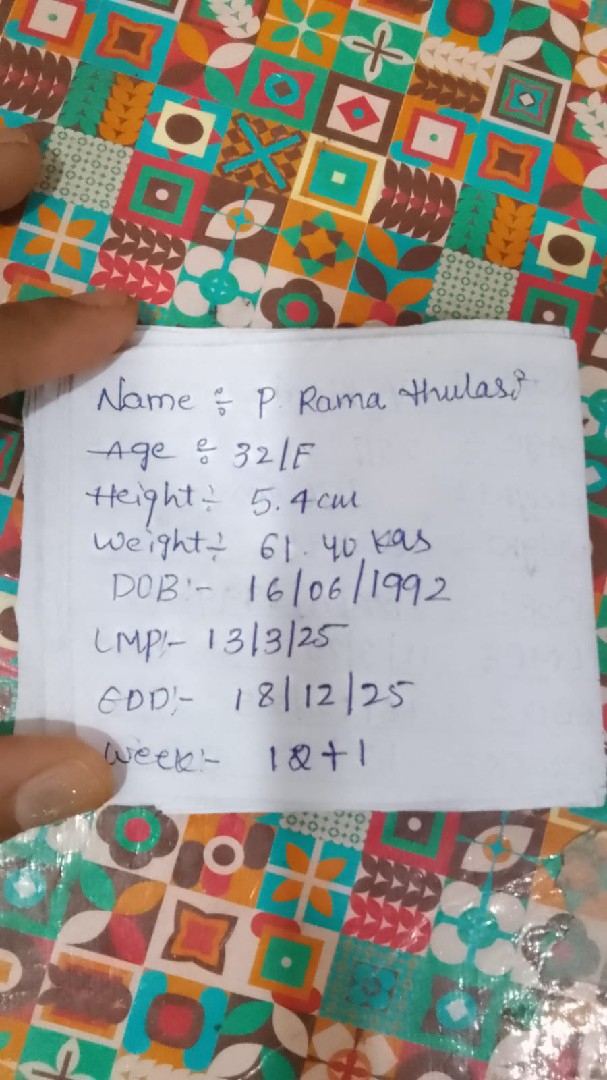 Name ÷ P. Rama thulasi
Age : 32/F
Height ÷ 5.4 cm
Weight ÷ 61.40 Kgs
DOB:- 16/06/1992
LMP:- 13/3/25
EDD:- 18/12/25
Week:- +1